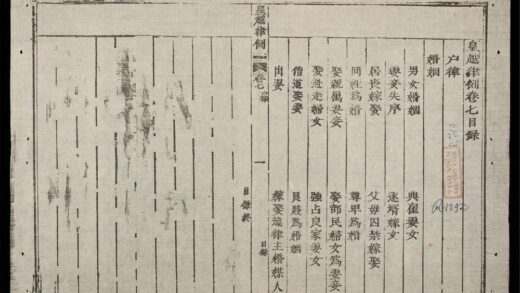 皇越律例卷七目録
户律
婚姻
男女婚姻 典雇妻女
妻妾失序 逐婿嫁女
居喪嫁娶 父母囚禁嫁娶
同姓為婚 尊卑為婚
娶親屬妻妾 娶部民婦女為妻妾
娶逃走婦女 強占良家妻女
僧道娶妻 良賤為婚姻
出妻 嫁娶違律主婚媒人
目録終
皇越律例 卷七 一 目録
R.1292